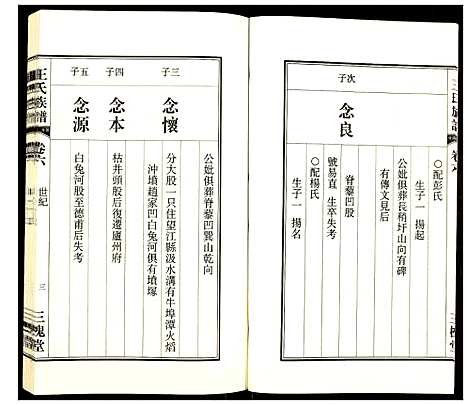 王氏族譜
卷六
○配彭氏
生子一 揚起
公妣俱葬長稍圩山向有碑
有傳文見后
次子
念良
脊藜凹股
號易直 生卒失考
○配楊氏
生子一 揚名
公妣俱葬脊藜凹巽山乾向
三子
念懷
分大股一只住望江縣汲水溝有牛埠潭火焰
沖墳趙家凹白兔河俱有墳塚
四子
念本
枯井頭股后復遷廬州府
五子
念源
白兔河股至德甫后失考
王氏族譜
卷六
世紀
三
三槐堂